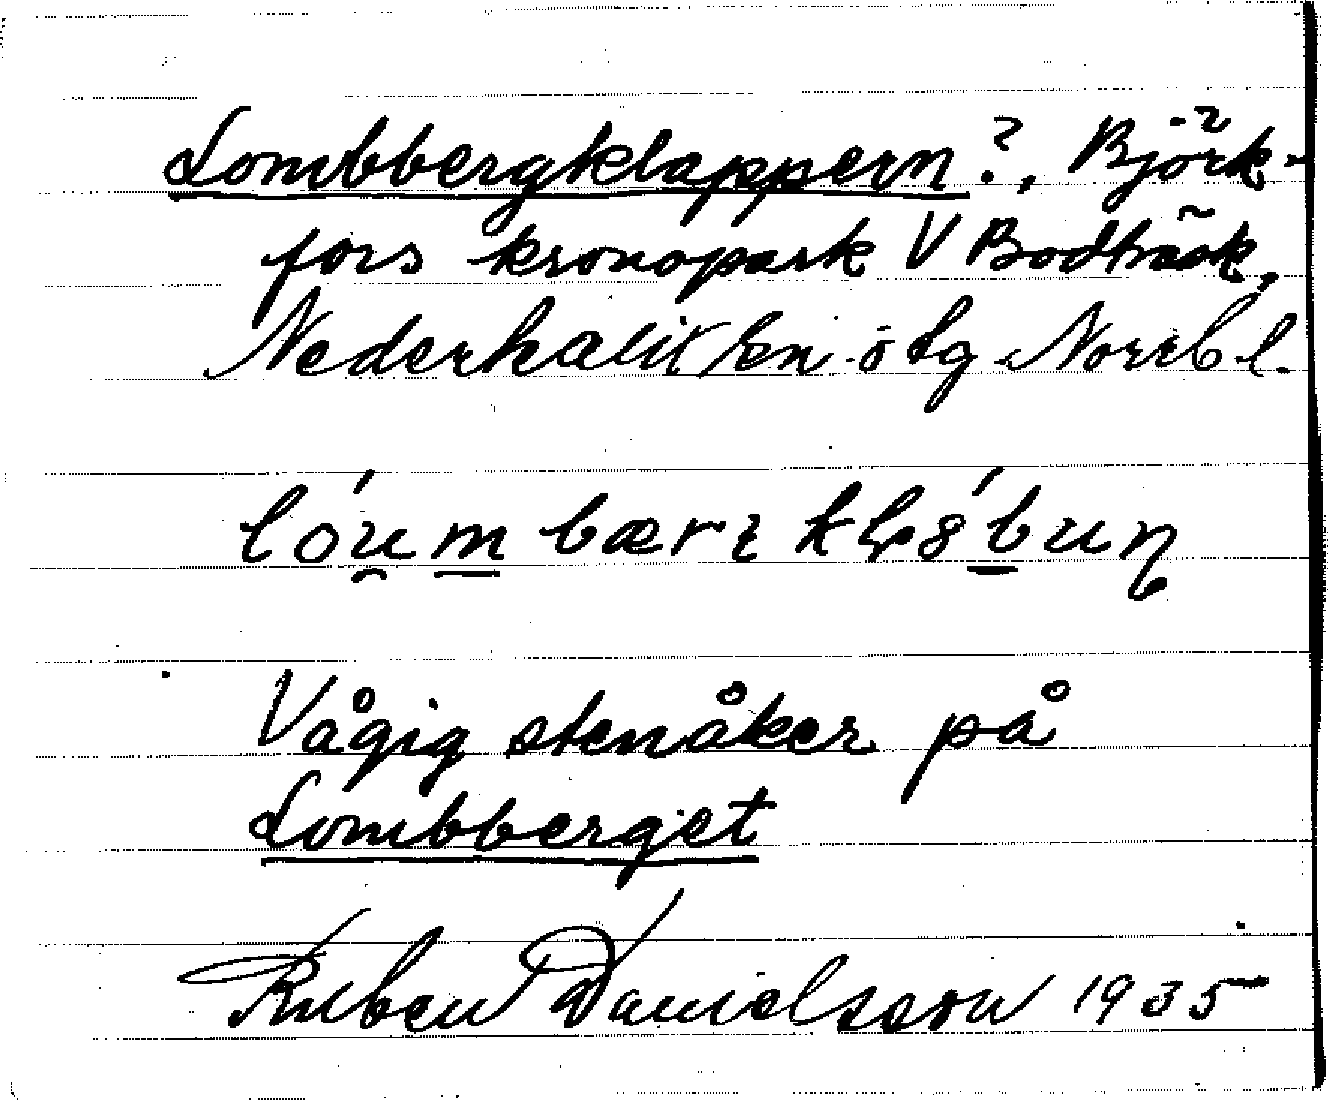 Lombbergklappern?, Björk-
fors kronopark V Bodträsk,
Nederkalix sn o tg Norrb l.
Vågig stenåker på
Lombberget
Ruben Danielsson 1935